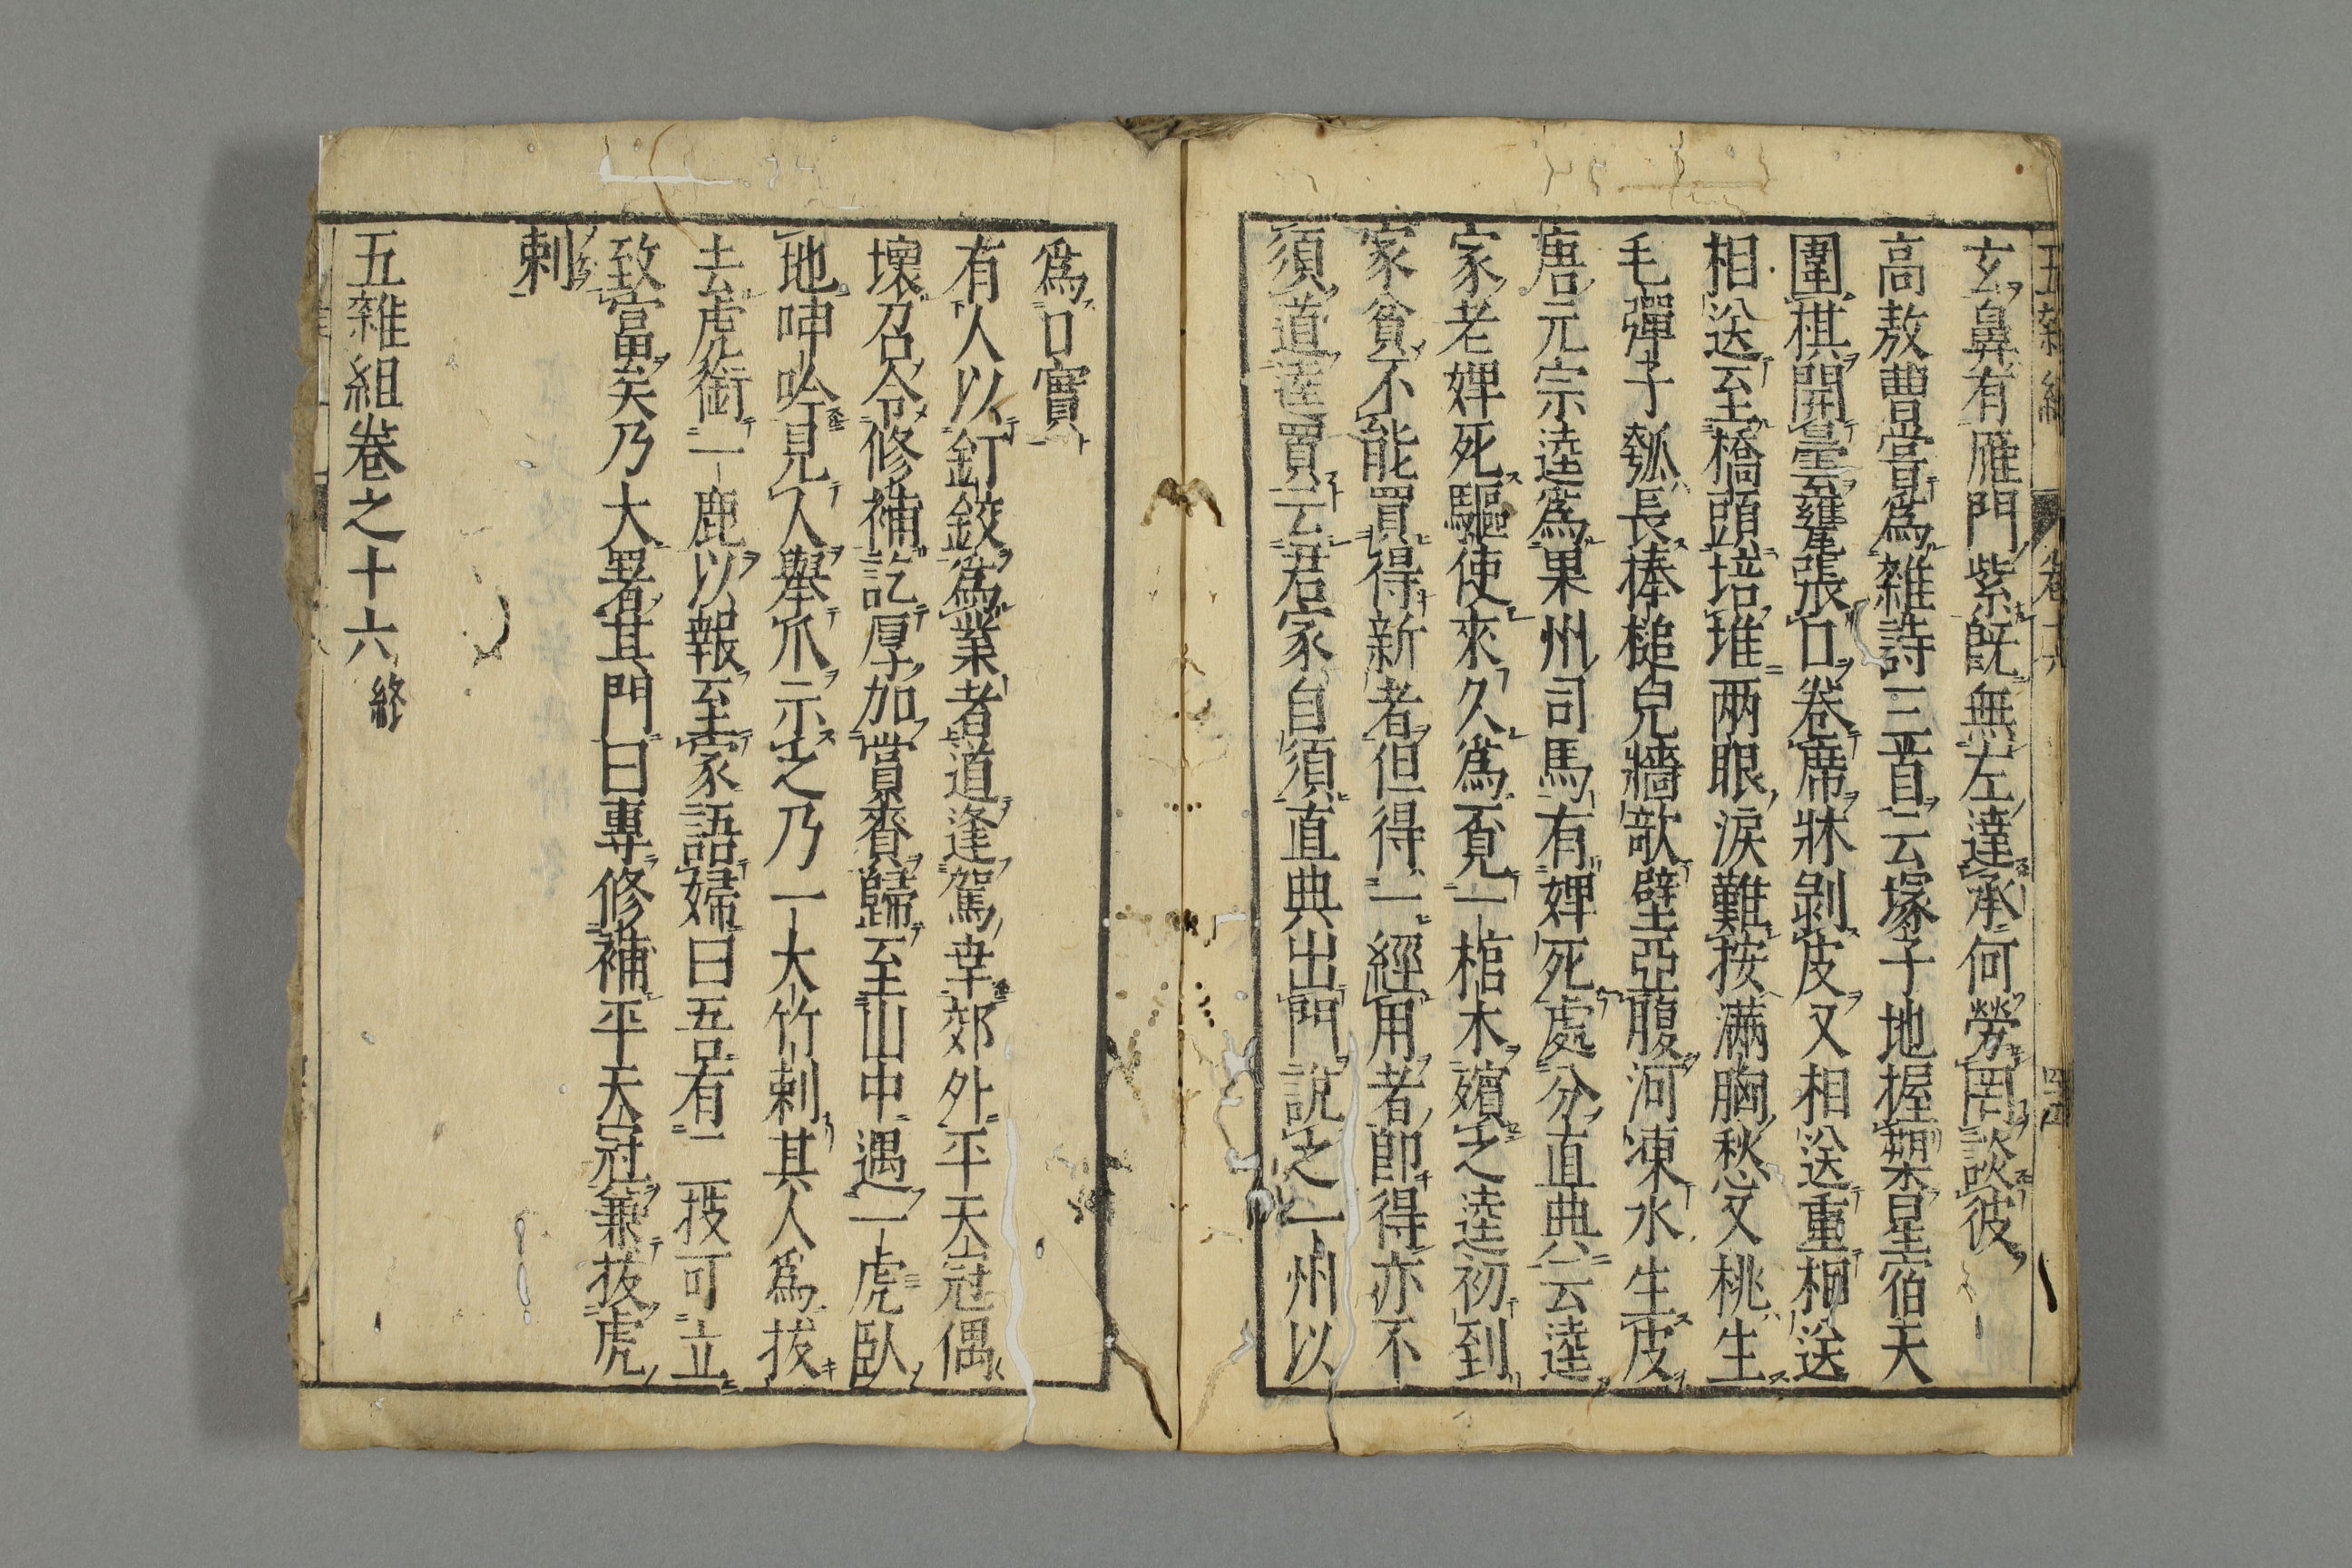 玄鼻有雁門紫既無左達承何勞罔談彼
高敖曹嘗爲雜詩三首云塚子地握槊星宿天
圍棋開罋甕張口卷席牀剝皮又相送重相送
相送至橋頭培堆兩眼淚難按滿胸愁又桃生
毛彈子瓠長捧槌兒牆欹壁亞腹河凍水生皮
唐元宗逵爲果州司馬有婢死處分直典云逵
家老婢死驅使來久爲覓一棺木殯之逵初到
家貧不能買得新者但得一經用者即得亦不
須道逵買云君家自須直典出門說之一州以
爲口實
有人以釘鉸爲業者道逢駕幸郊外平天冠偶
壞召令修補訖厚加賞賚歸至山中遇一虎臥
地呻吟見人舉爪示之乃一大竹刺其人爲拔
去虎銜一鹿以報至家語婦曰吾有二技可立
致富矣乃大署其門曰專修補平天冠兼拔虎
刺
五雜組卷之十六終